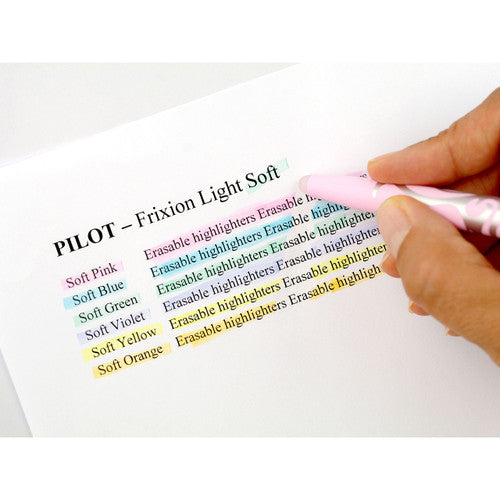 PILOT – Frixion Light Soft
Soft Pink Erasable highlighters Erasable
Soft Blue Erasable highlighters Erasable highlighters
Soft Green Erasable highlighters Erasable highlighters
Soft Violet Erasable highlighters Erasable highlighters
Soft Yellow Erasable highlighters Erasable highlighters
Soft Orange Erasable highlighters Erasable highlighters